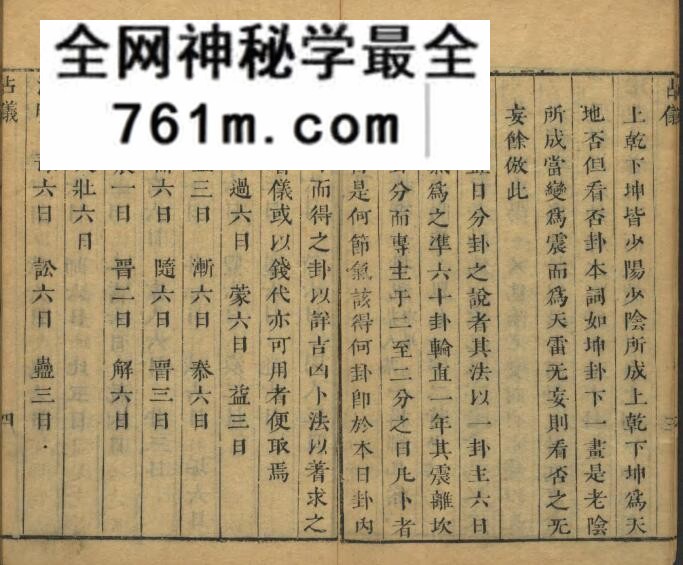 全网神秘学最全
761m.com
占儀
上乾下坤皆少陽少陰所成上乾下坤爲天
地否但看否卦本詞如坤卦下一畫是老陰
所成當變爲震而爲天雷无妄則看否之无
妄餘倣此
日分卦之說者其法以一卦主六日
氣爲之準六十卦輪直一年其震離坎
卦分而專主于二至二分之日凡卜者
是何節氣該得何卦即於本日卦內
而得之卦以詳吉凶卜法以蓍求之
儀或以錢代亦可用者便取焉
過六日 蒙六日 益三日
三日 漸六日 泰六日
六日 隨六日 晉三日
一日 晉二日 解六日
壯六日
六日 訟六日 蠱三日
占儀
四